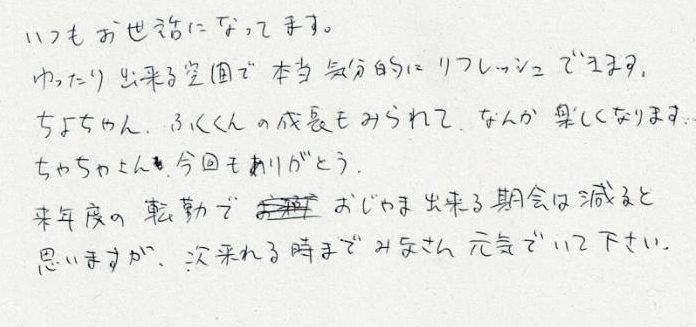 いつもお世話になってます。
ゆったり出来る空間で本当気分的にリフレッシュできます。
ちよちゃん、ふくくんの成長もみられて、なんか楽しくなります…
ちゃちゃさんも今回もありがとう。
来年度の転勤でおじゃま出来る期会は減ると
思いますが、次来れる時までみなさん元気でいて下さい。